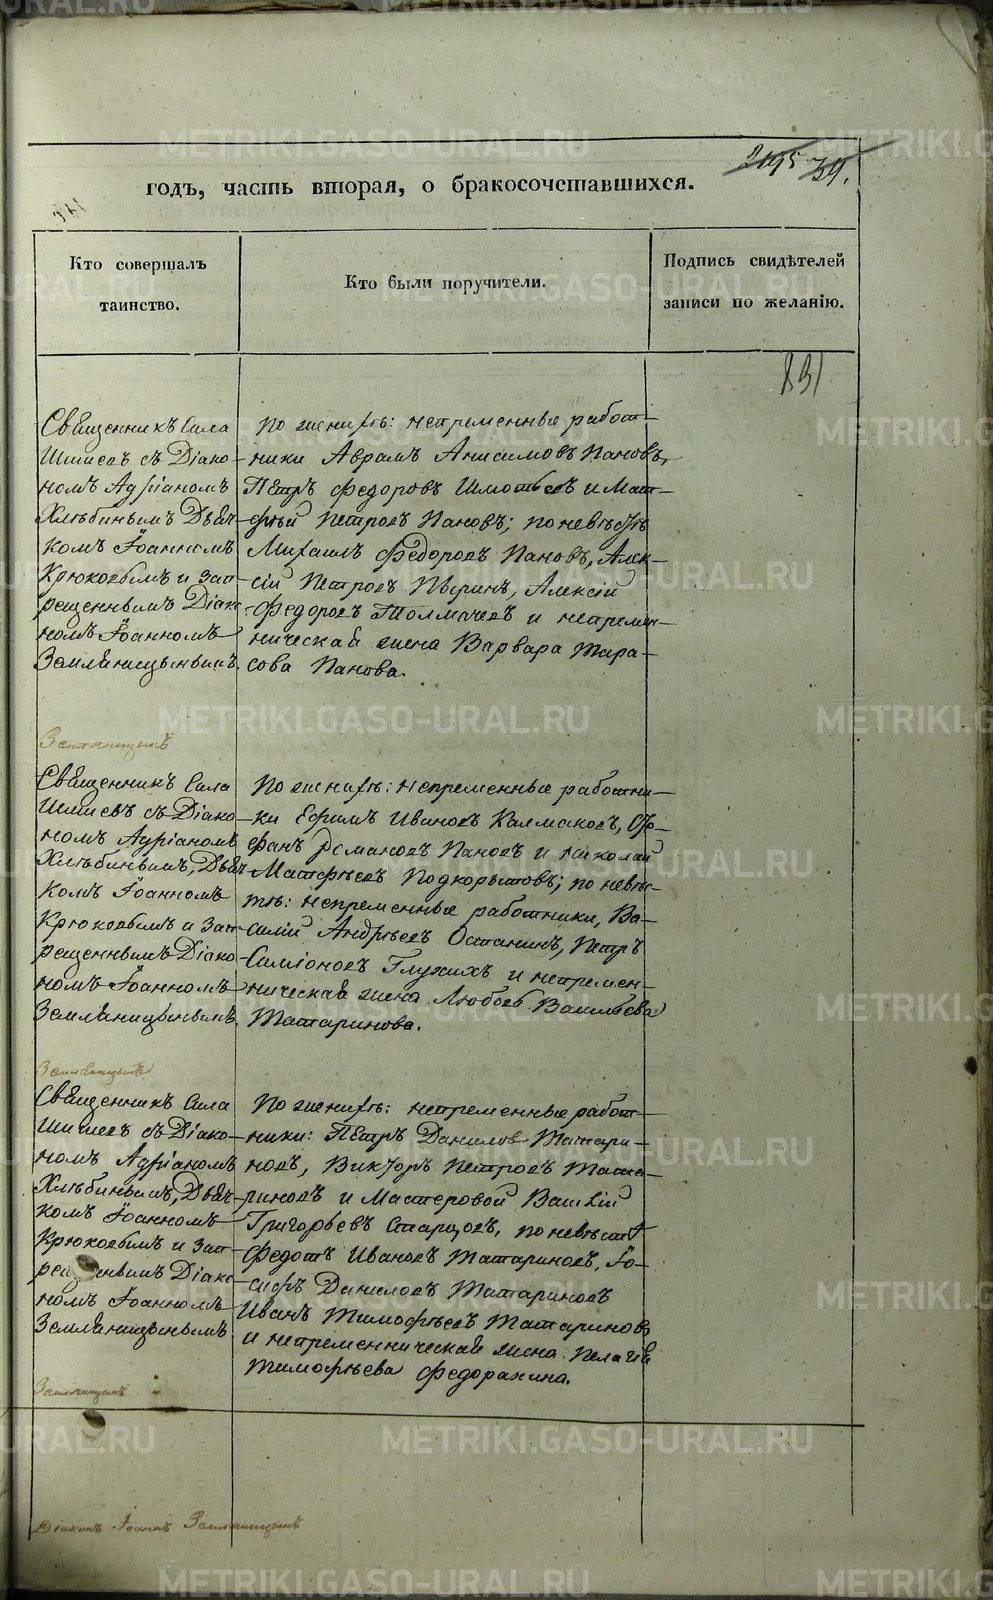 годъ, часть вторая, о бракосочетавшихся.
2195 39.
Кто совершалъ
таинство.
Кто были поручители.
Подпись свидѣтелей
записи по желанію.
831
Священникъ Сила
Шишевъ съ Діако-
номъ Адріаномъ
Хлѣбинымъ Дьяч-
комъ Іоанномъ
Крюковымъ и зап-
рещеннымъ Діако-
номъ Іоанномъ
Земляницынымъ.
По женихѣ: непременные работ-
ники Аврамъ Анисимовъ Пановъ,
Петръ Федоровъ и Мат-
фѣй Петровъ Пановъ; по невѣстѣ
Михаилъ Федоровъ Пановъ, Алек-
сій Петровъ Алексій
Федоровъ Толмачевъ и непремен-
ническая жена Варвара Тара-
сова Панова.
Земляницынъ
Священникъ Сила
Шишевъ съ Діако-
номъ Адріаномъ
Хлѣбинымъ, Дьяч-
комъ Іоанномъ
Крюковымъ и зап-
рещеннымъ Діако-
номъ Іоанномъ
Земляницынымъ.
По женихѣ: непременные работни-
ки Ефимъ Ивановъ Калмаковъ, Сте-
фанъ Романовъ Пановъ и Николай
Матфѣевъ Подкорытовъ; по невѣс-
тѣ: непременные работники, Ва-
силій Андрѣевъ Останинъ, Петръ
Симіоновъ Глухихъ и непремен-
ническая жена Любовь Васильева
Татаринова.
Земляницынъ
Священникъ Сила
Шишевъ съ Діако-
номъ Адріаномъ
Хлѣбинымъ, Дьяч-
комъ Іоанномъ
Крюковымъ и зап-
рещеннымъ Діако-
номъ Іоанномъ
Земляницынымъ
По женихѣ: непременные работ-
ники: Петръ Даниловъ Татари-
новъ, Викторъ Петровъ Тата-
риновъ и Мастеровой Василій
Григорьевъ Старцовъ, по невѣстѣ
Федотъ Ивановъ Татариновъ, Іо-
сифъ Даниловъ Татариновъ
Иванъ Тимофѣевъ Татариновъ
и непременническая жена Пелагія
Тимофѣева Федорахина.
Земляницынъ
Діаконъ Іоаннъ Земляницынъ
METRIKI.GASO-URAL.RU